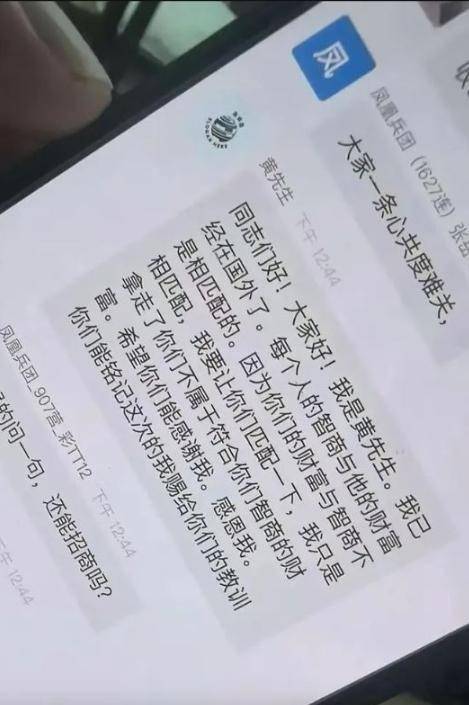 收
凤
凤凰兵团（1627连）张岳
大家一条心共度难关，
黄先生 下午 12:44
同志们好！大家好！我是黄先生。我已
经在国外了。每个人的智商与他的财富
是相匹配的。因为你们的财富与智商不
相匹配，我要让你们匹配一下，我只是
拿走了你们不属于符合你们智商的财
富。希望你们能感谢我。感恩我。
你们能铭记这次的我赐给你们的教训
凤凰兵团_907营_彩TT12 下午 12:44
的问一句，还能招商吗？
下午 12:44